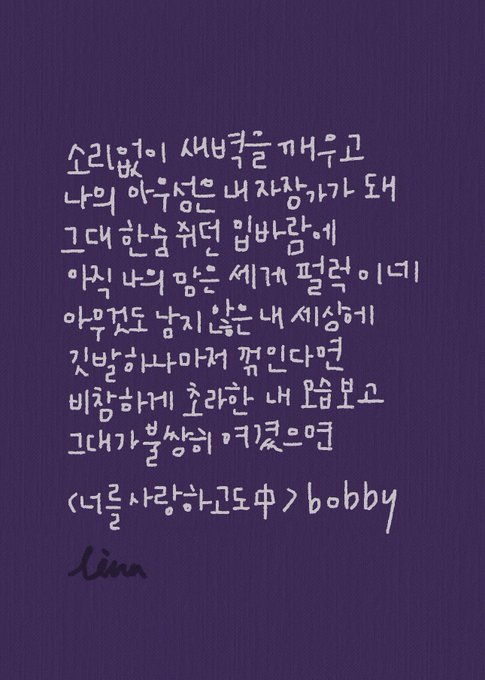 소리없이 새벽을 깨우고
나의 아우성은 내 자장가가 돼
그대 한숨 쉬던 입바람에
아직 나의 맘은 세게 펄럭이네
아무것도 남지 않은 내 세상에
깃발하나마저 꺾인다면
비참하게 초라한 내 모습보고
그대가 불쌍히 여겼으면
<너를 사랑하고도中> bobby
lina